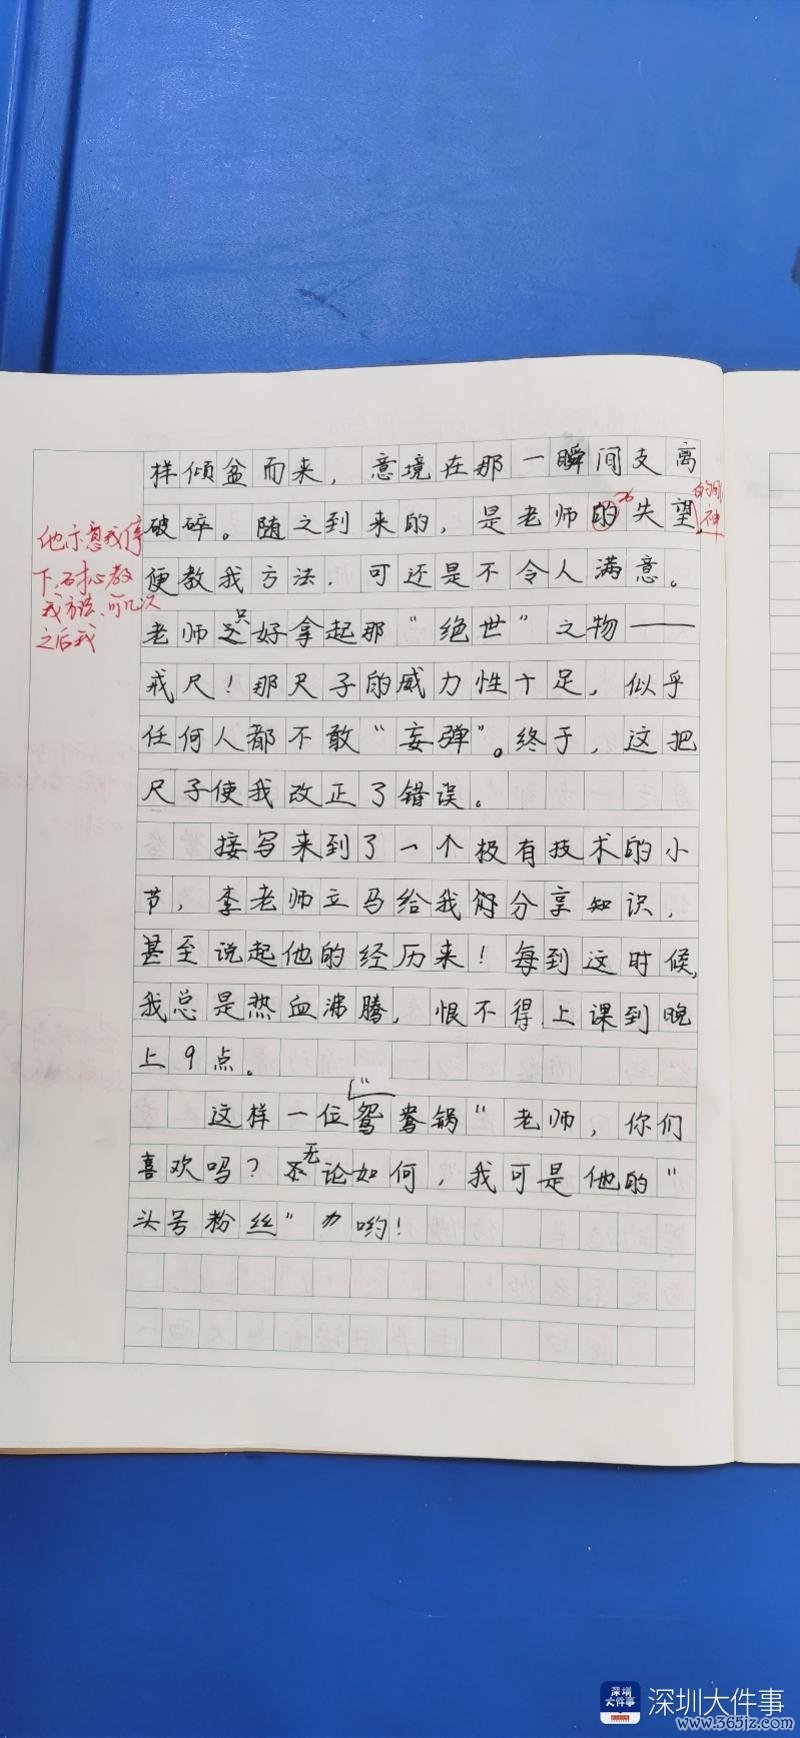 样倾盆而来，意境在那一瞬间支离
破碎。随之到来的，是老师的失望，
便教我方法，可还是不令人满意。
老师只好拿起那“绝世”之物——
戒尺！那尺子的威力性十足，似乎
任何人都不敢“妄弹”。终于，这把
尺子使我改正了错误。
接写来到了一个极有技术的小
节，李老师立马给我分享知识，
甚至说起他的经历来！每到这时候，
我总是热血沸腾，恨不得上课到晚
上9点。
这样一位“鸳鸯锅”老师，你们
喜欢吗？无论如何，我可是他的“
头号粉丝”哟！
他示意我停
下，耐心教
我方法，可几次
之后我
深圳大件事
www.365jz.com